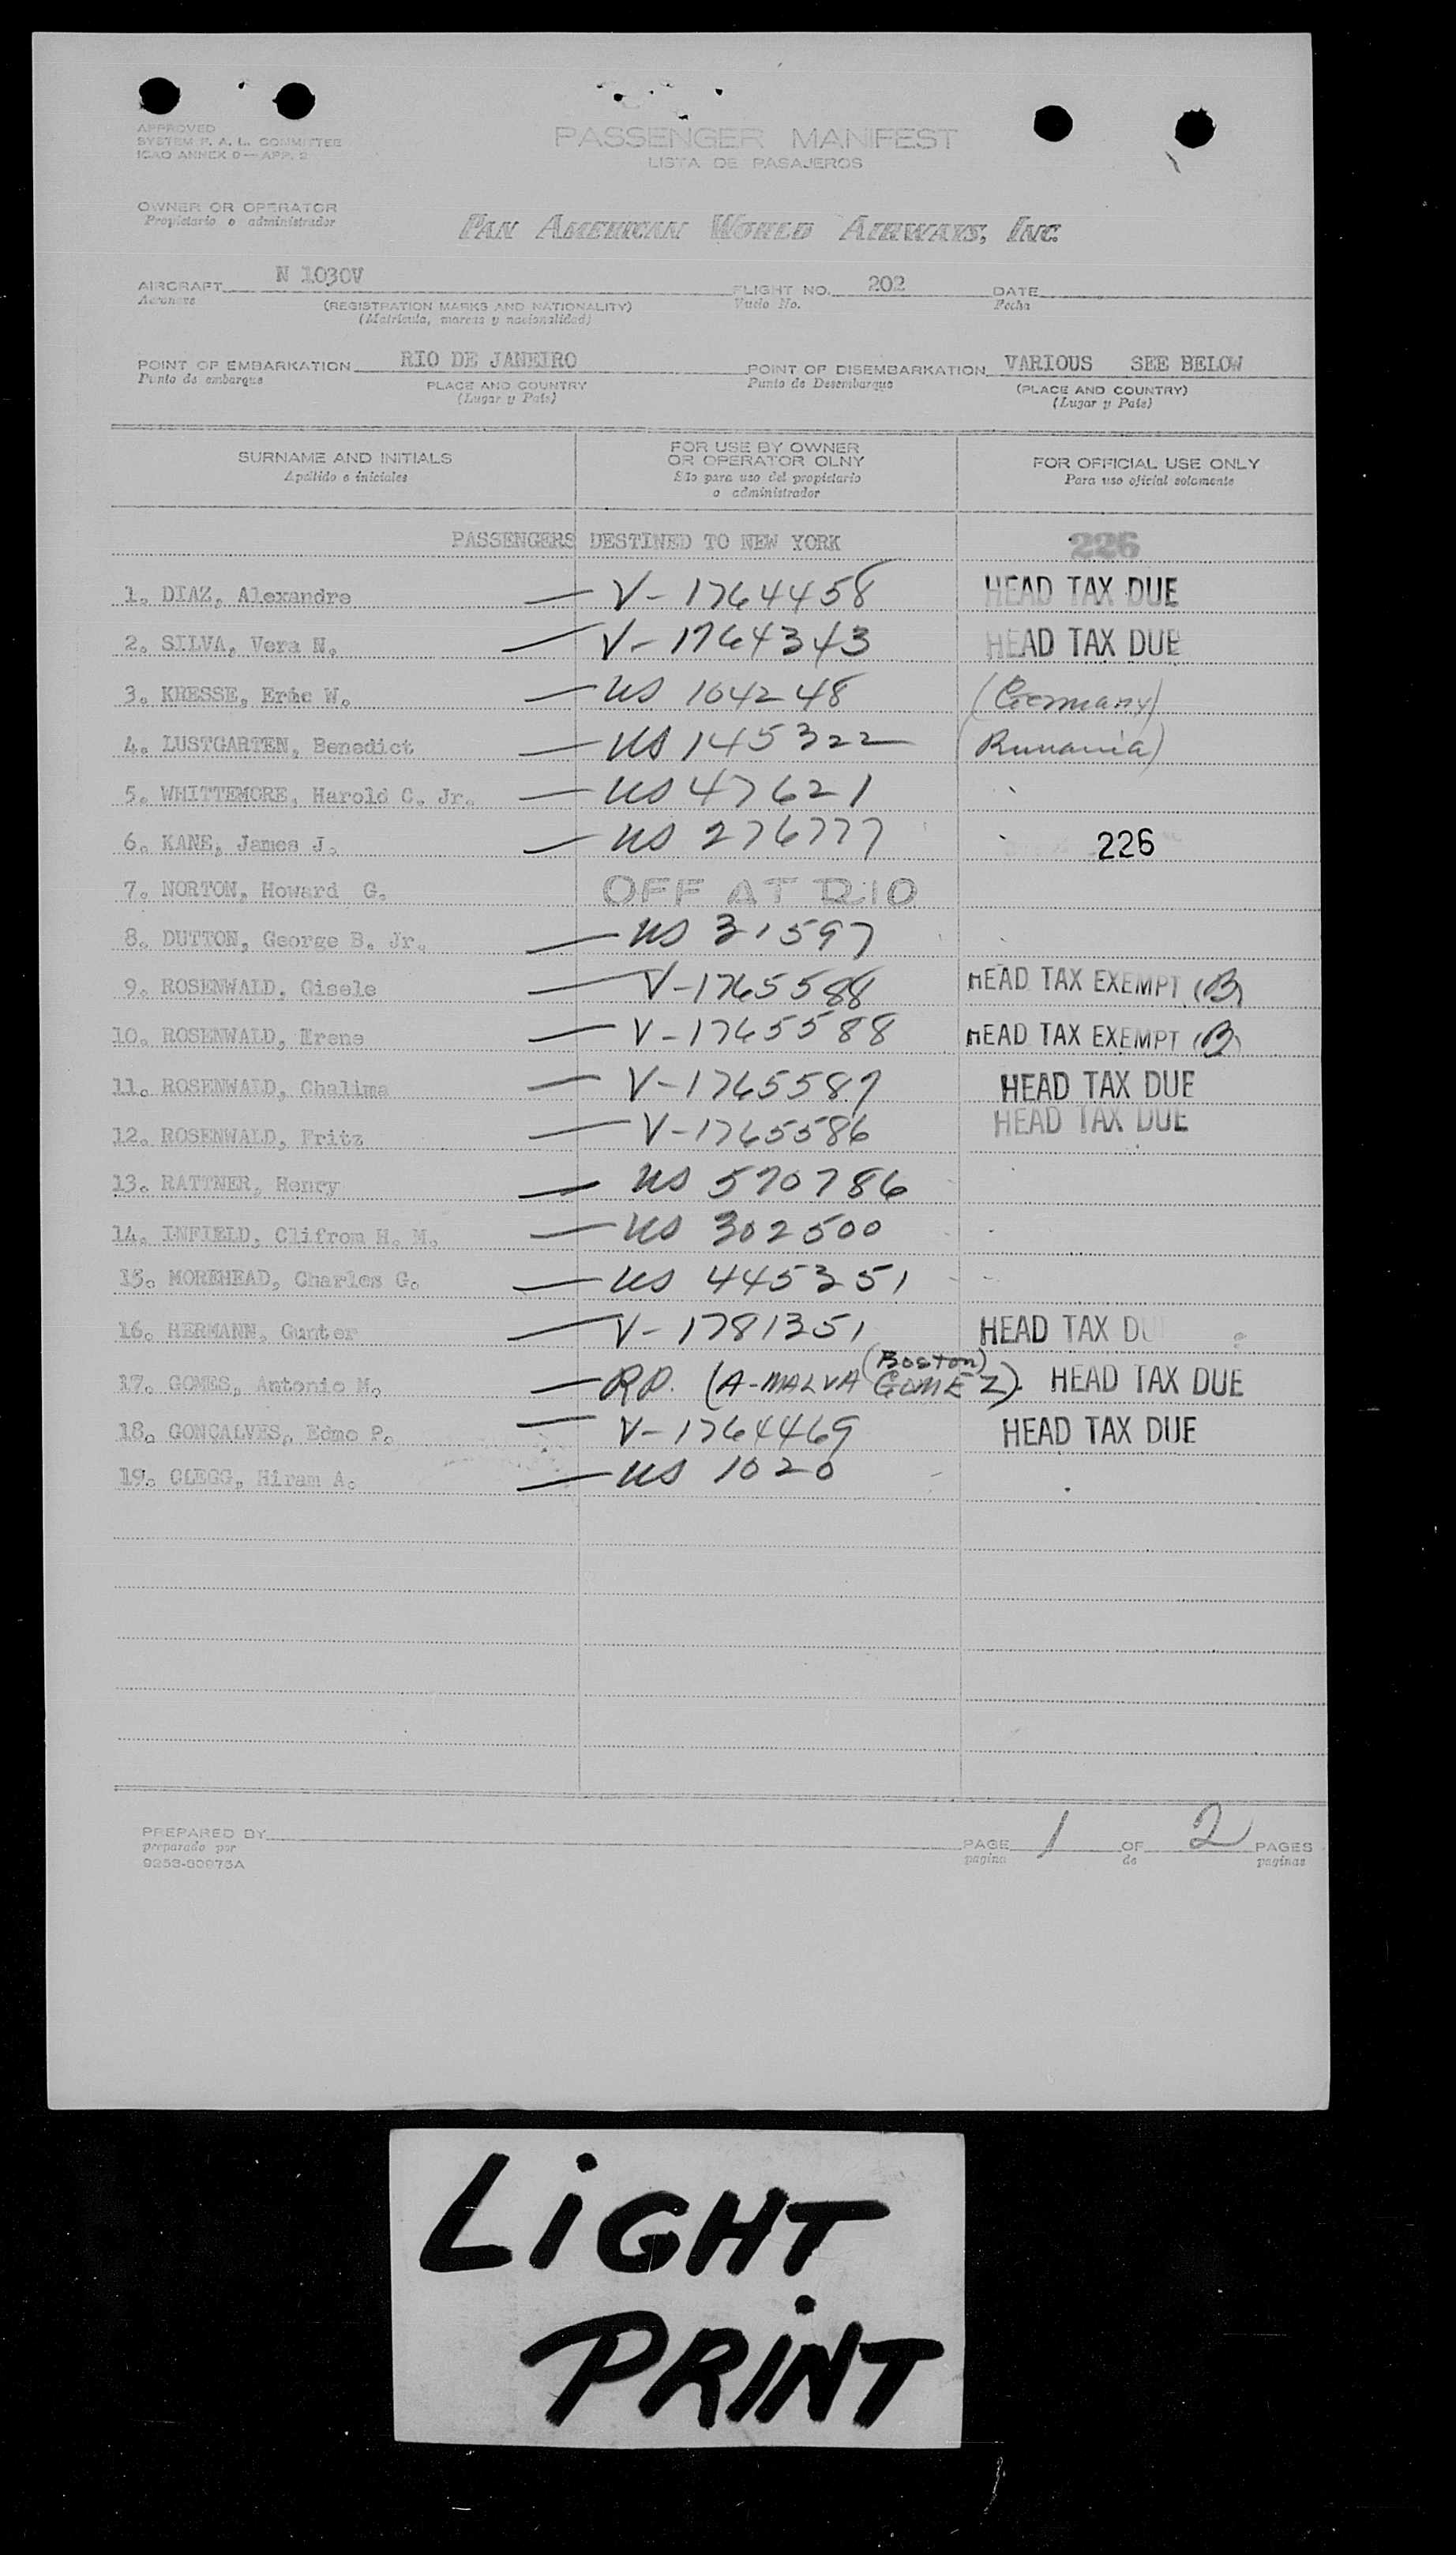 APPROVED
SYSTEM F. A. L. COMMITTEE
ICAO ANNEX 9—APP. 2
PASSENGER MANIFEST
LISTA DE PASAJEROS
OWNER OR OPERATOR
Propietario o administrador
PAN AMERICAN WORLD AIRWAYS, INC.
AIRCRAFT N 1030V FLIGHT NO. 202 DATE
Aeronave (REGISTRATION MARKS AND NATIONALITY) Vuelo No. Fecha
(Matrícula, marcas y nacionalidad)
POINT OF EMBARKATION RIO DE JANEIRO POINT OF DISEMBARKATION VARIOUS SEE BELOW
Punto de embarque PLACE AND COUNTRY Punto de Desembarque (PLACE AND COUNTRY)
(Lugar y País) (Lugar y País)
SURNAME AND INITIALS FOR USE BY OWNER OR OPERATOR OLNY FOR OFFICIAL USE ONLY
Apellido e iniciales Sólo para uso del propietario o administrador Para uso oficial solamente
PASSENGERS DESTINED TO NEW YORK 226
1. DIAZ, Alexandre — V-1764458 HEAD TAX DUE
2. SILVA, Vera N. — V-1764343 HEAD TAX DUE
3. KRESSE, Eric W. — US 104248 (Germany)
4. LUSTGARTEN, Benedict — US 145322 (Rumania)
5. WHITTEMORE, Harold C. Jr. — US 47621
6. KANE, James J. — US 276777 226
7. NORTON, Howard G. OFF AT RIO
8. DUTTON, George B. Jr. — US 31597
9. ROSENWALD, Gisele — V-1765588 HEAD TAX EXEMPT (B)
10. ROSENWALD, Irene — V-1765588 HEAD TAX EXEMPT (B)
11. ROSENWALD, Chalima — V-1765587 HEAD TAX DUE
12. ROSENWALD, Fritz — V-1765586 HEAD TAX DUE
13. RATTNER, Henry — US 570786
14. INFIELD, Clifrom H. M. — US 302500
15. MOREHEAD, Charles G. — US 445351
16. HERMANN, Gunter — V-1781351 HEAD TAX DU
17. GOMES, Antonio M. — RP. (A-MALVA GOMEZ). (Boston) HEAD TAX DUE
18. GONCALVES, Edmo P. — V-1764469 HEAD TAX DUE
19. CLEGG, Hiram A. — US 1020
PREPARED BY PAGE 1 OF 2 PAGES
preparado por pagina de paginas
9253-60975A
LIGHT
PRINT